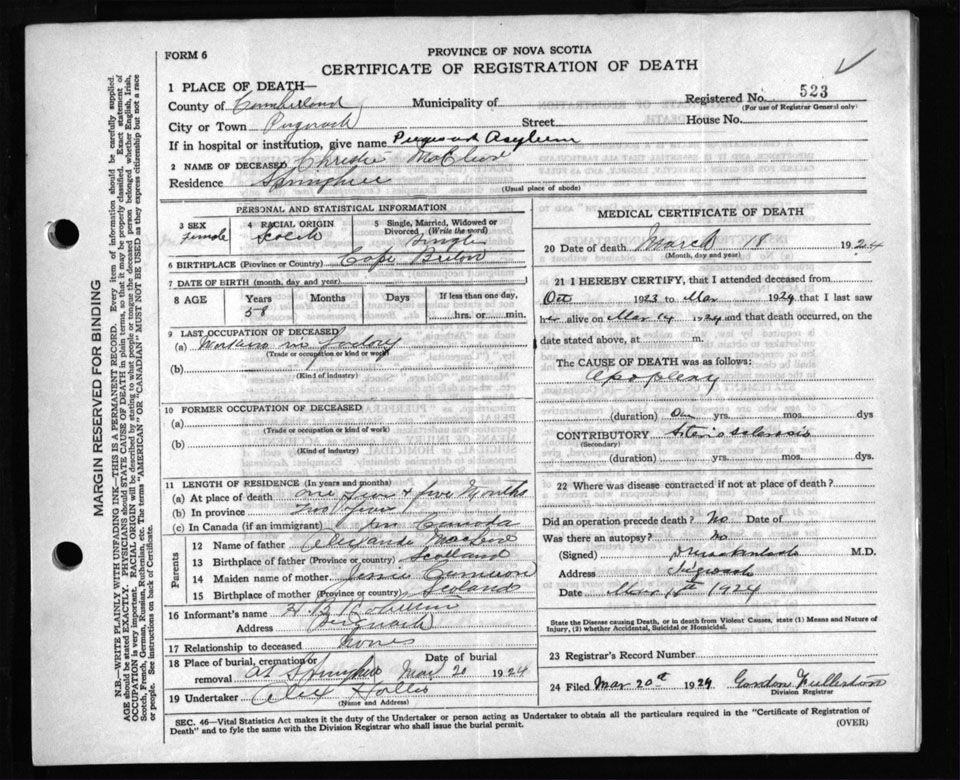 FORM 6
PROVINCE OF NOVA SCOTIA
CERTIFICATE OF REGISTRATION OF DEATH
1 PLACE OF DEATH—
Registered No. 523
(For use of Registrar General only)
County of Cumberland Municipality of
City or Town Pugwash Street House No.
If in hospital or institution, give name Pugwash Asylum
2 NAME OF DECEASED Christie
Residence Springhill
(Usual place of abode)
PERSONAL AND STATISTICAL INFORMATION
3 SEX Female
4 RACIAL ORIGIN Scotch
5 Single, Married, Widowed or Divorced (Write the word) Single
6 BIRTHPLACE (Province or Country) Cape Breton
7 DATE OF BIRTH (month, day and year)
8 AGE Years 58 Months Days If less than one day, hrs. or min.
9 LAST OCCUPATION OF DECEASED
(a) Working in factory
(Trade or occupation or kind of work)
(b)
(Kind of industry)
10 FORMER OCCUPATION OF DECEASED
(a)
(Trade or occupation or kind of work)
(b)
(Kind of industry)
11 LENGTH OF RESIDENCE (In years and months)
(a) At place of death one year & five Months
(b) In province
(c) In Canada (if an immigrant) Canada
Parents
12 Name of father
13 Birthplace of father (Province or country) Scotland
14 Maiden name of mother Jessie Cameron
15 Birthplace of mother (Province or country) Scotland
16 Informant's name H. B.
Address Pugwash
17 Relationship to deceased None
18 Place of burial, cremation or removal at Springhill Date of burial Mar 20 1924
19 Undertaker Alex Hollis
(Name and Address)
MEDICAL CERTIFICATE OF DEATH
20 Date of death March 18 1924
(Month, day and year)
21 I HEREBY CERTIFY, that I attended deceased from
Oct 1923 to Mar 1924 that I last saw
h alive on Mar 14 1924 and that death occurred, on
date stated above, at m.
The CAUSE OF DEATH was as follows:
Apoplexy
(duration) yrs. mos. dys
CONTRIBUTORY Arterio sclerosis
(Secondary)
(duration) yrs. mos. dys.
22 Where was disease contracted if not at place of death?
Did an operation precede death? No Date of
Was there an autopsy? No
(Signed) M.D.
Address Pugwash
Date 1924
State the Disease causing Death, or in death from Violent Causes, state (1) Means and Nature of
Injury, (2) whether Accidental, Suicidal or Homicidal.
23 Registrar's Record Number
24 Filed Mar 20th 1924 Gordon
Division Registrar
SEC. 46—Vital Statistics Act makes it the duty of the Undertaker or person acting as Undertaker to obtain all the particulars required in the "Certificate of Registration of
Death" and to fyle the same with the Division Registrar who shall issue the burial permit.
(OVER)
MARGIN RESERVED FOR BINDING
N.B.—WRITE PLAINLY WITH UNFADING INK—THIS IS A PERMANENT RECORD. Every item of information should be carefully supplied.
AGE should be stated EXACTLY. PHYSICIANS should STATE CAUSE OF DEATH in plain terms, so that it may be properly classified. Exact statement of
OCCUPATION is very important. RACIAL ORIGIN will be described by stating to what people or tongue the deceased person belonged whether English, Irish,
Scotch, French, German, Russian, Ruthenian, etc. The terms "AMERICAN" OR "CANADIAN" MUST NOT BE USED as they express citizenship but not a race
or people. See instructions on back of Certificate.